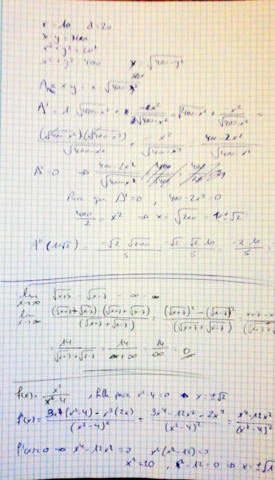 x = 10 d = 20
x y = Area
x² + y² = 20²
x² + y² = 400 y = √400-y²
A = x y = x √400-x²
A' = 1 √400-x² + x -2x / 2√400-x² = √400-x² + x² / √400-x² =
(√400-x²)(√400-x²) / √400-x² + x² / √400-x² = 400-2x² / √400-x²
A' = 0 ⇒ 400-2x² / √400-x²
Para que A' = 0, 400-2x² = 0
400 / 2 = x² ⇒ x = √200 = 10±√2
A''(10√2) = -√2 √200 / 5 = -√2 √2 10 / 5 = -2 10 / 5 =
lim x→∞ √x+7 - √x-7 = ∞ - ∞
lim x→∞ (√x+7 - √x-7)(√x+7 + √x-7) / (√x+7 + √x-7) = (√x+7)² - (√x-7)² / (√x+7 + √x-7) = x+7-x
= 14 / √x+7 + √x-7 = 14 / ∞+∞ = 14 / ∞ = 0
f(x) = x³ / x²-4 , para x²-4 = 0 ⇒ x = ±√2
f'(x) = 3x²(x²-4) - x³(2x) / (x²-4)² = 3x⁴-12x²-2x⁴ / (x²-4)² = x⁴-12x² / (x²-4)²
f'(x) = 0 ⇒ x⁴-12x² = 0 x²(x²-12) = 0
x² = 0, x²-12 = 0 ⇒ x = ±√1